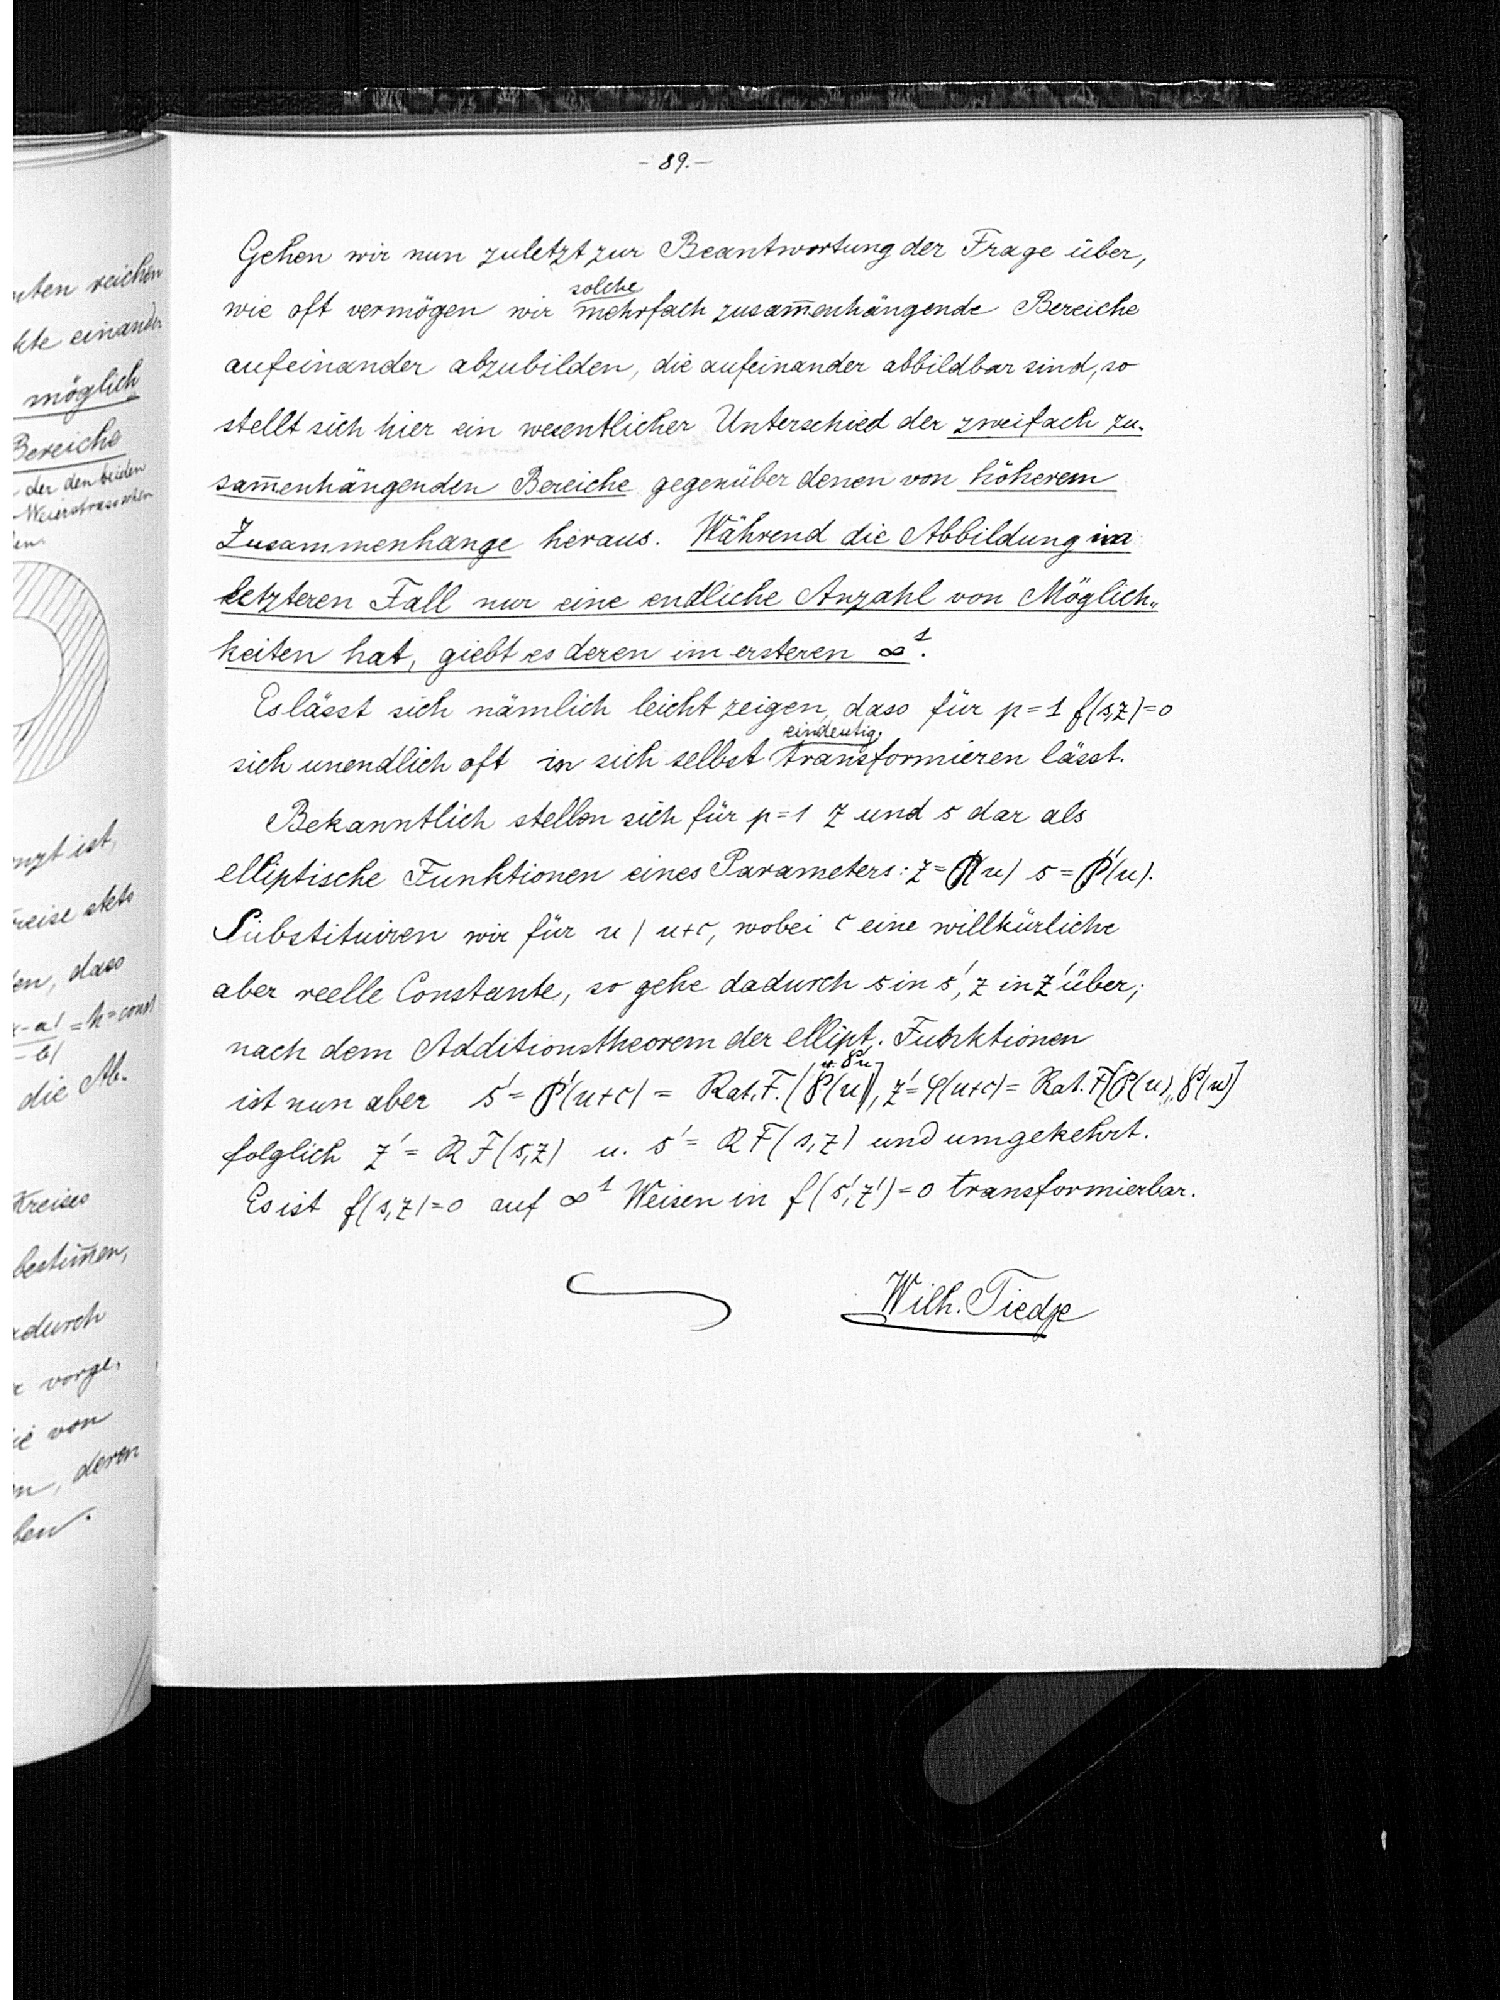 - 89. -
Gehen wir nun zuletzt zur Beantwortung der Frage über,
wie oft vermögen wir solche mehrfach zusam̅enhängende Bereiche
aufeinander abzubilden, die aufeinander abbildbar sind, so
stellt sich hier ein wesentlicher Unterschied der zweifach zu-
sam̅enhängenden Bereiche gegenüber denen von höherem
Zusammenhange heraus. Während die Abbildung im
letzteren Fall nur eine endliche Anzahl von Möglich-
keiten hat, giebt es deren im ersteren ∞¹.
Es lässt sich nämlich leicht zeigen, dass für p=1 f(s,z)=0
sich unendlich oft in sich selbst eindeutig transformieren lässt.
Bekanntlich stellen sich für p=1 z und s dar als
elliptische Funktionen eines Parameters: z=℘(u) s=℘'(u).
Substituiren wir für u / u+c, wobei c eine willkürliche
aber reelle Constante, so gehe dadurch s in s', z in z' über;
nach dem Additionstheorem der ellipt. Funktionen
ist nun aber s'=℘'(u+c) = Rat. F. [℘(u), ℘'u], z'=℘(u+c)= Rat. F[℘(u), ℘'(u)]
folglich z' = R F(s,z) u. s' = R F(s,z) und umgekehrt.
Es ist f(s,z)=0 auf ∞¹ Weisen in f(s',z')=0 transformierbar.
Wilh. Tiedje
nten reichen
kte einander
möglich
Bereiche
der den beiden
Weierstrassschen
nzt ist,
reise stets
en, dass
= k = const
die Ab-
Kreises
bestim̅en,
adurch
vorge-
ie von
n, deren
ben.